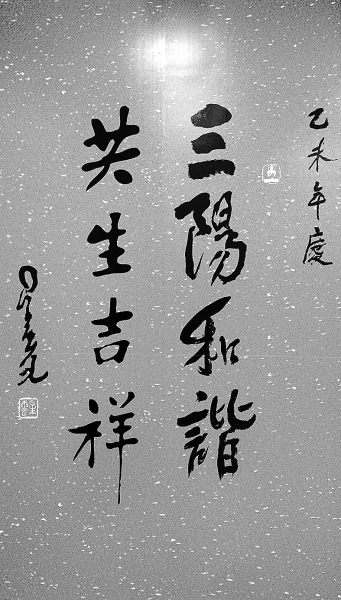 乙未年度
三陽和諧
共生吉祥
星雲